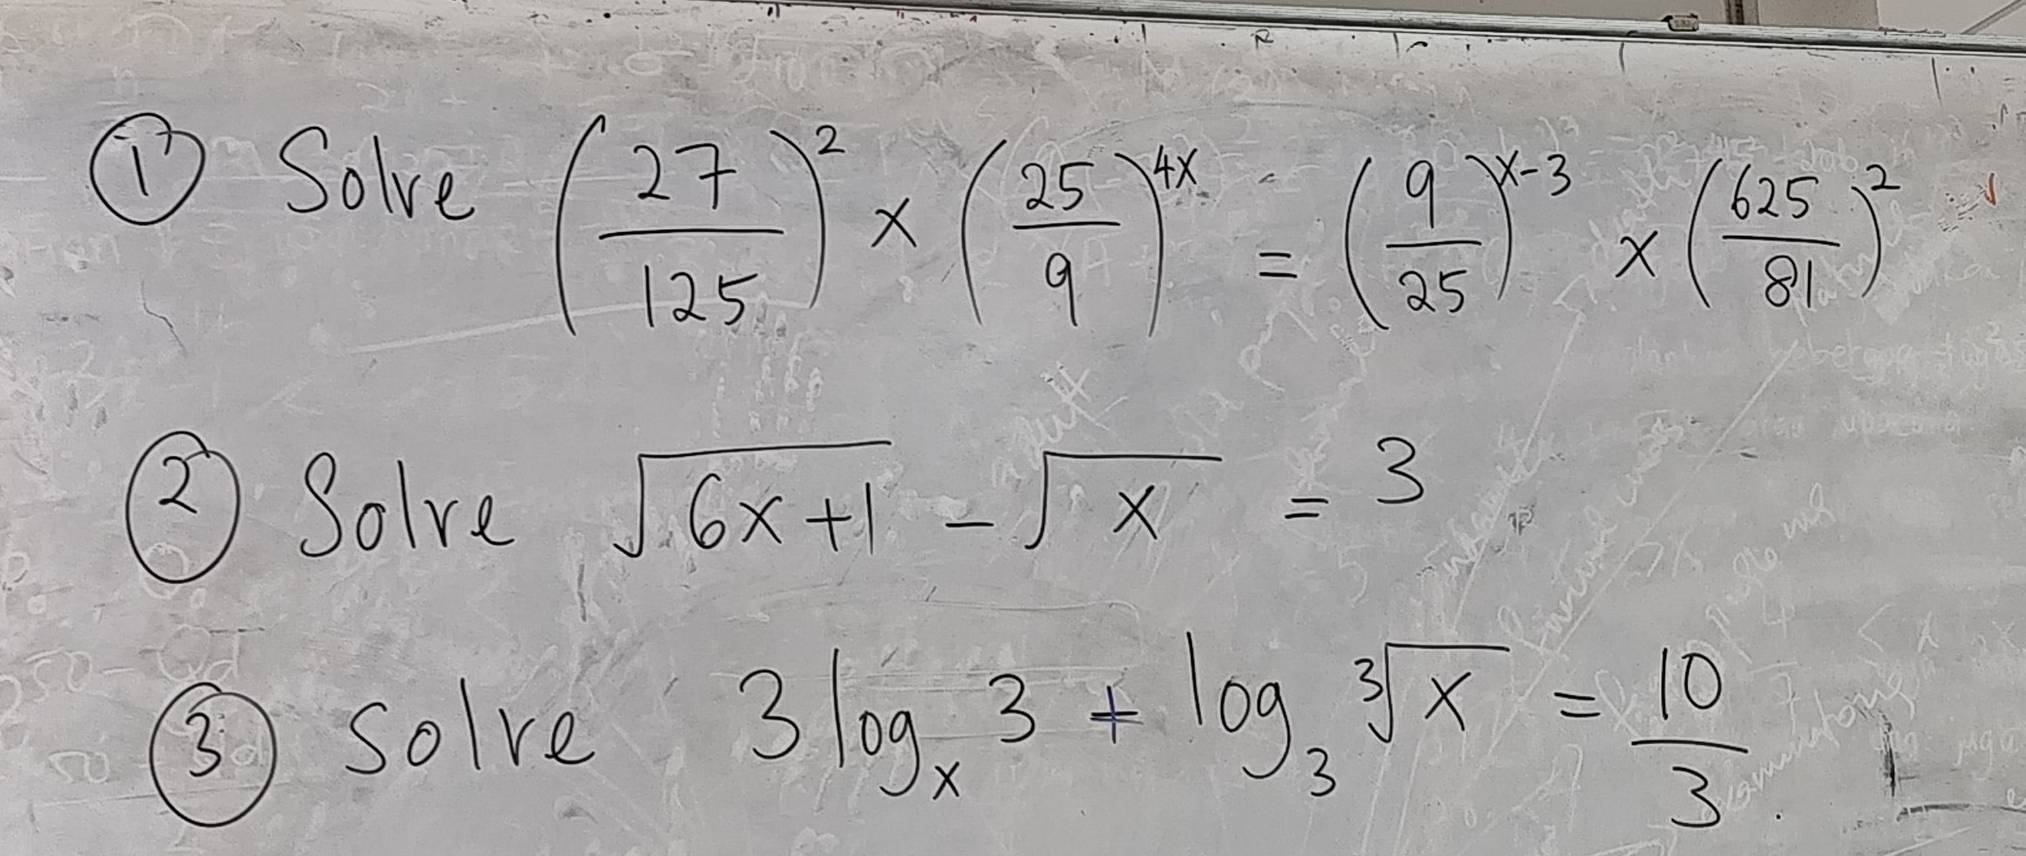 ① Solve (27/125)² × (25/9)^(4x) = (9/25)^(x-3) × (625/81)²
② Solve √(6x+1) - √x = 3
③ Solve 3 log_x 3 + log_3 ∛x = 10/3.